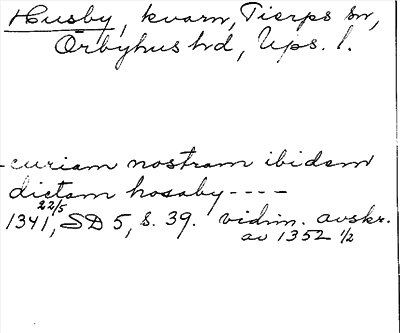 Husby, kvarn, Tierps sn,
Örbyhus hd, Ups. l.
-curiam nostram ibidem
dictam hosaby----
1341 22/5, SD 5, s. 39. vidim. avskr.
av 1352 1/2